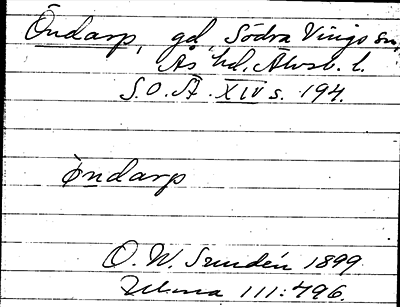 Öndarp, gd, Södra Vings sn,
Ås hd. Älvsb. l.
S.O.Ä. XIV s. 194.
öndarp
O. W. 1899
111:496